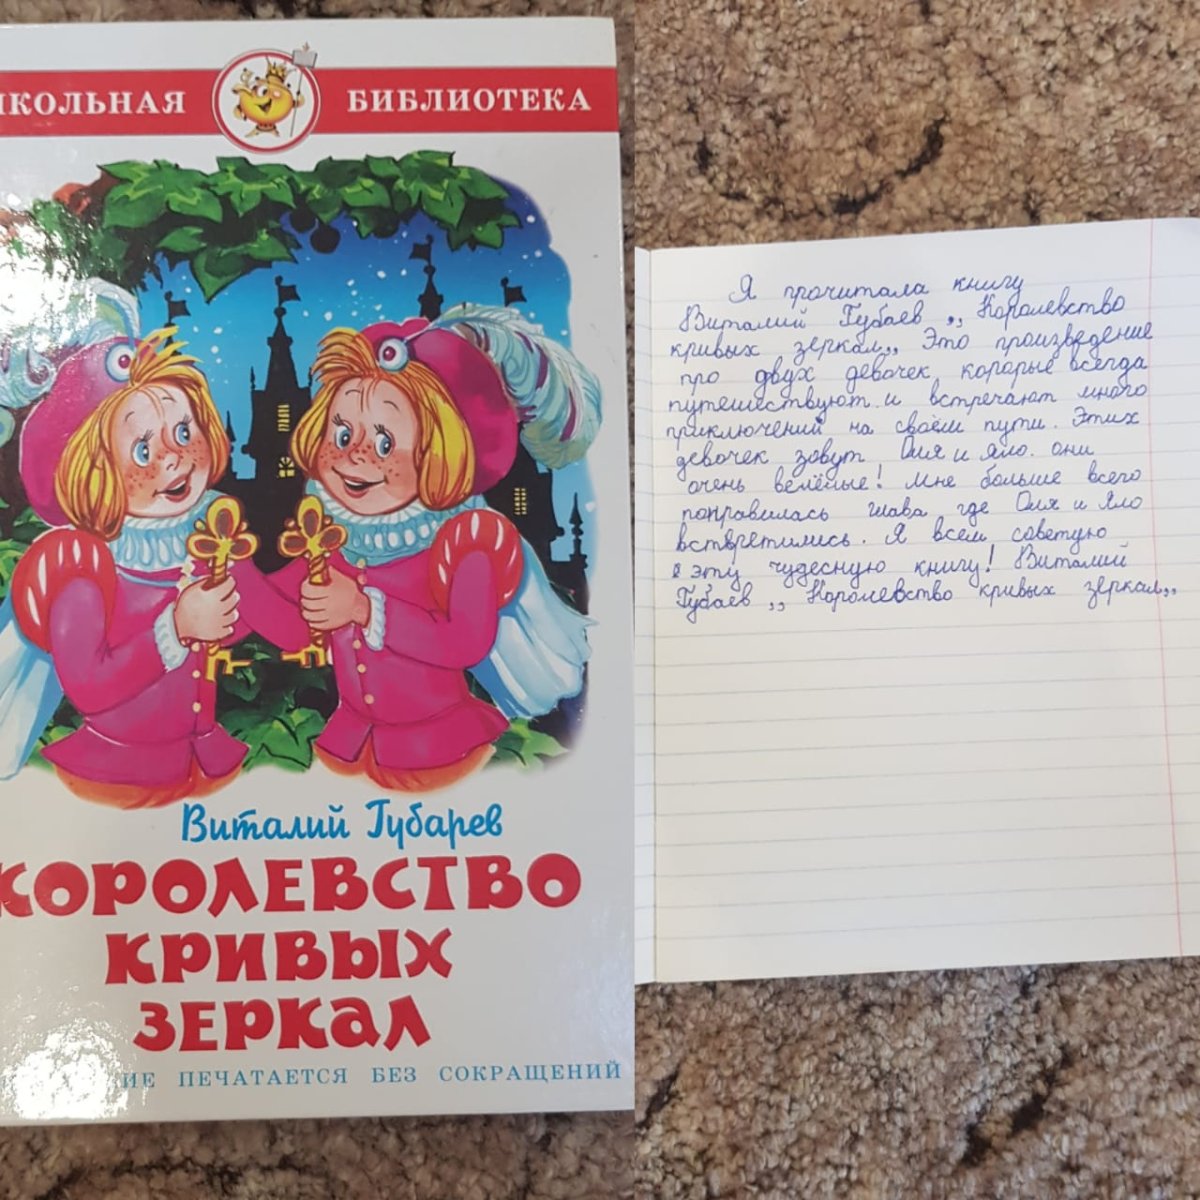 ШКОЛЬНАЯ БИБЛИОТЕКА
Виталий Губарев
КОРОЛЕВСТВО
КРИВЫХ
ЗЕРКАЛ
ИЕ ПЕЧАТАЕТСЯ БЕЗ СОКРАЩЕНИЙ
Я прочитала книгу
Виталий Губаев ,, Королевство
кривых зеркал,, Это произведение
про двух девочек корорые всегда
путешествуют и встречают много
приключений на своём пути. Этих
девочек зовут Оля и яло. они
очень велёлые! Мне больше всего
понравилась глава где Оля и Яло
вствретились. Я всем советую
эту чудесную книгу! Виталий
Губаев ,, Королевство кривых зеркал,,